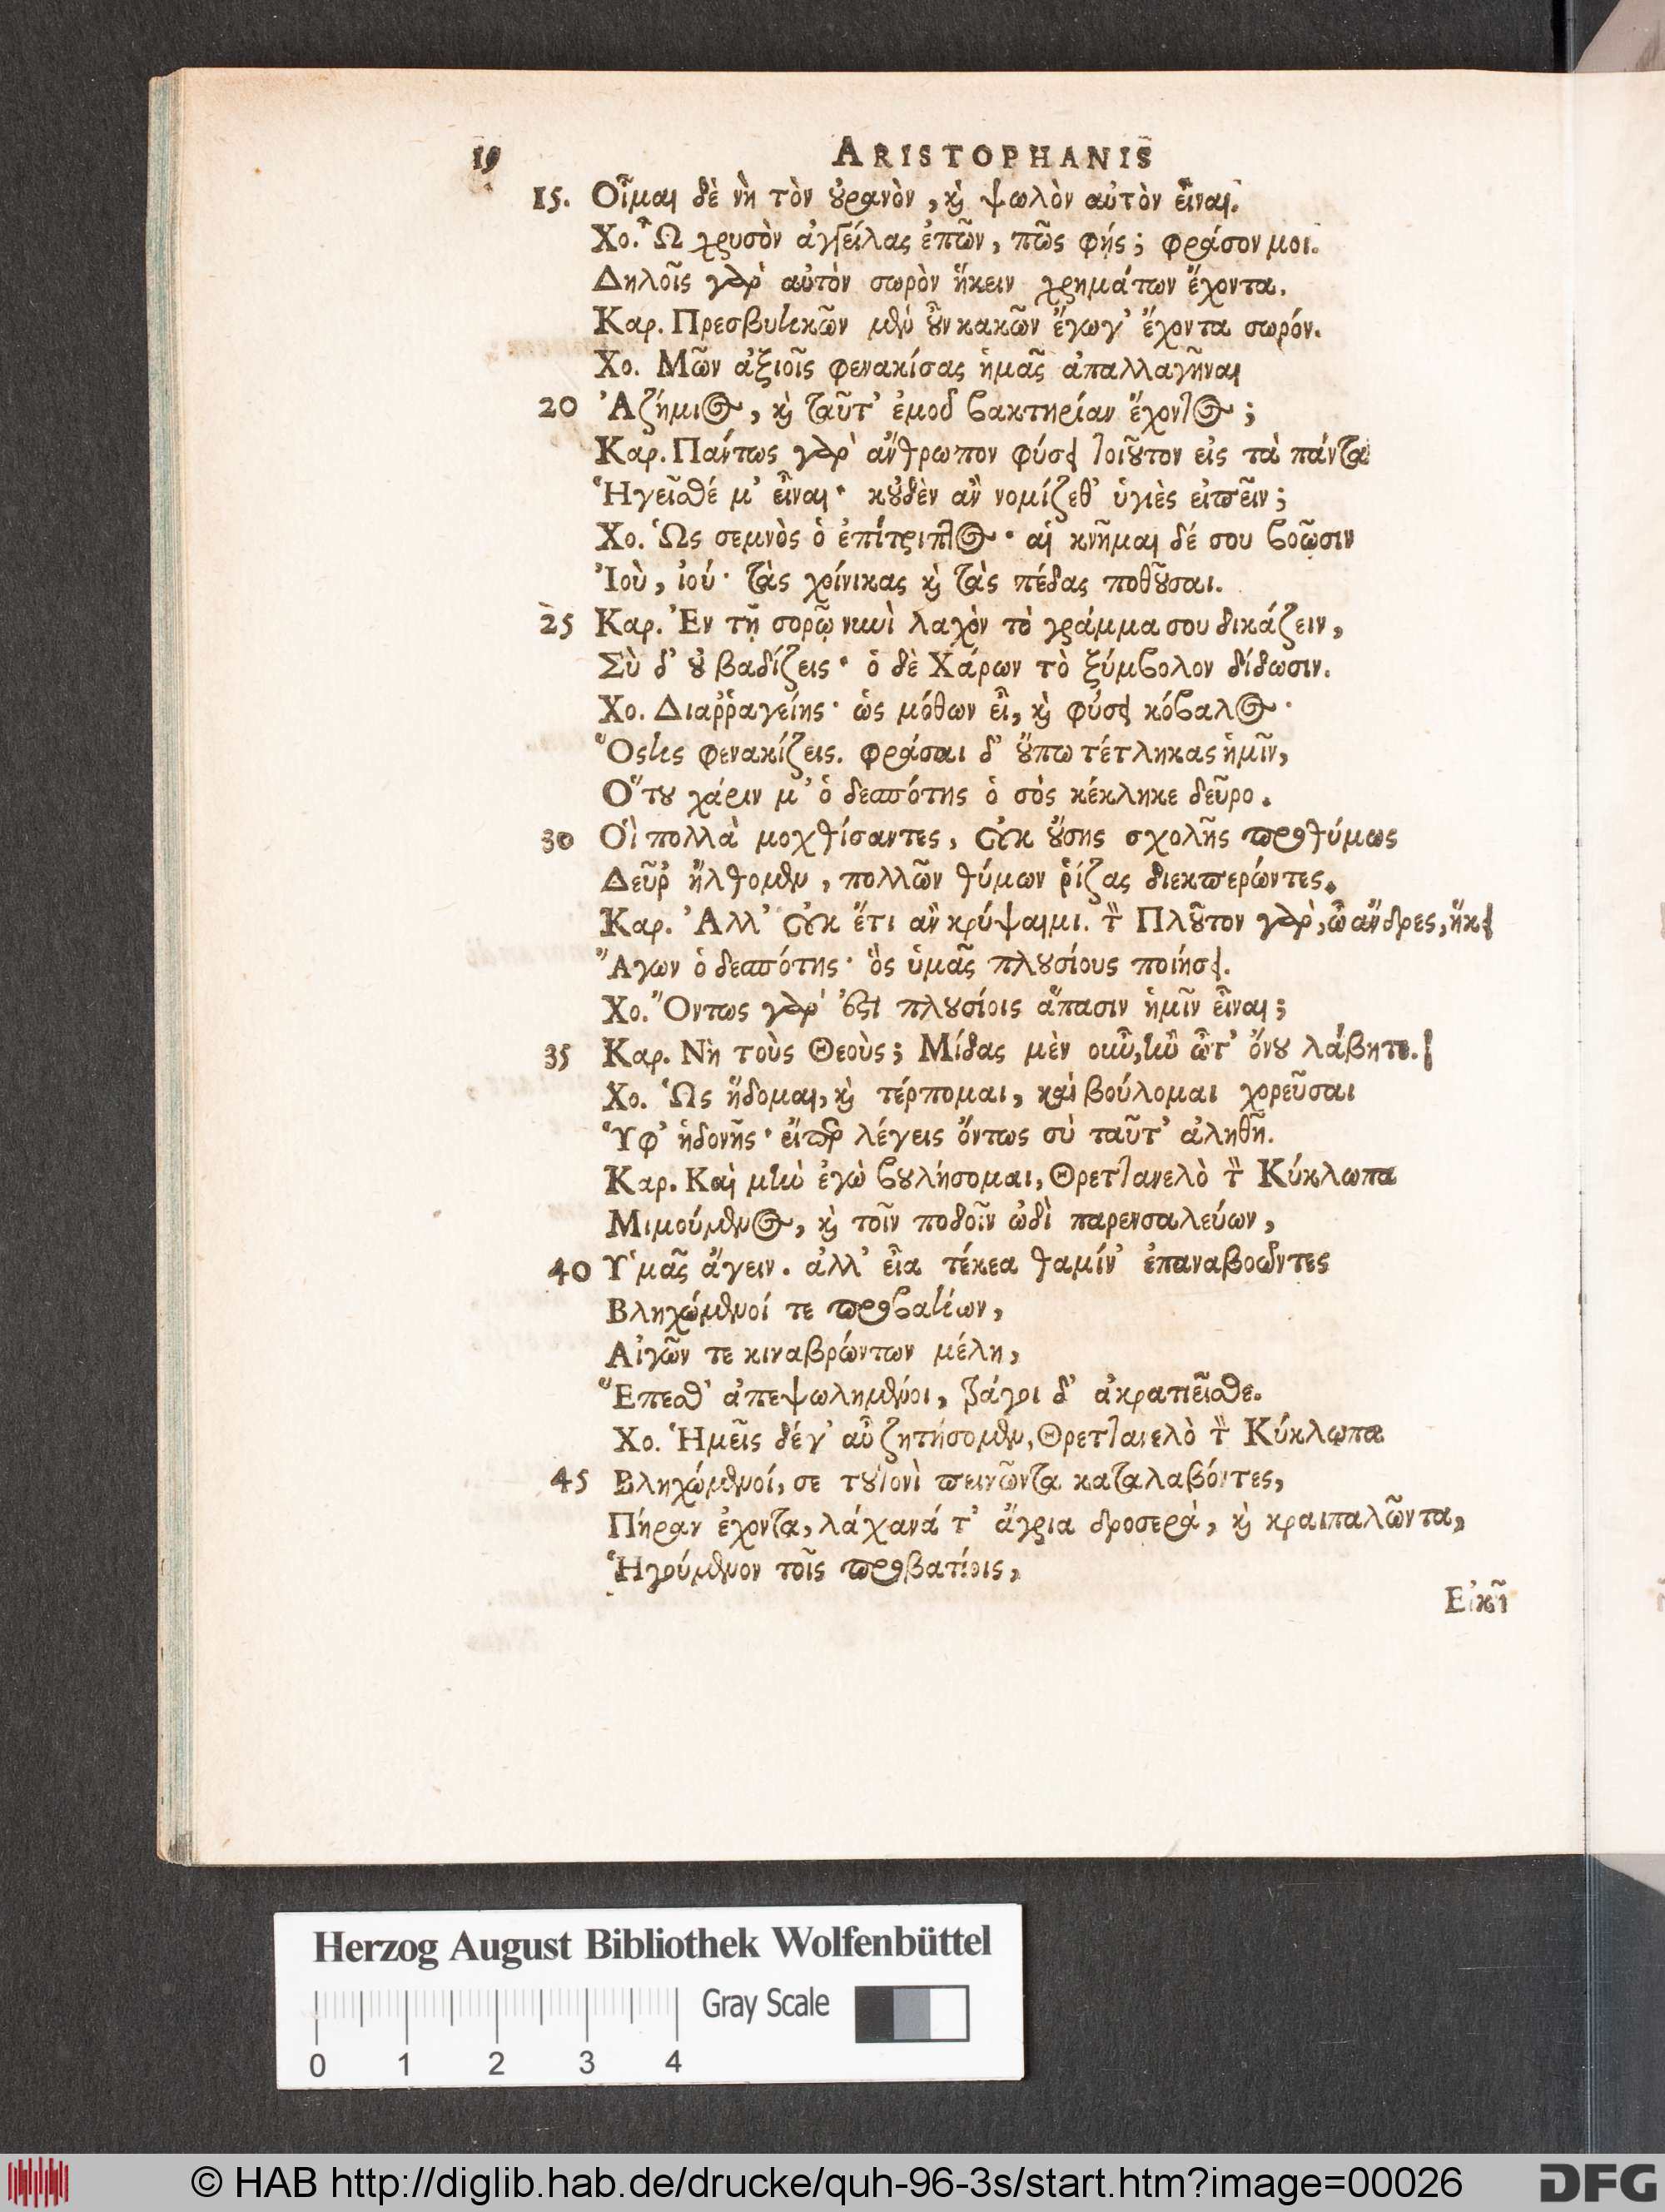 19 ARISTOPHANIS
15. Οἶμαι δὲ νὴ τὸν ȣ̓ρανὸν, ϗ̀ ψωλὸν αὐτὸν εἶναι.
Χο. Ὦ χρυσὸν ἀγγείλας ἐπῶν, πῶς φῄς; φράσον μοι.
Δηλοῖς γὰρ αὐτὸν σωρὸν ἥκειν χρημάτων ἔχοντα.
Καρ. Πρεσβυτικῶν μὲν ȣ̓͂ν κακῶν ἔγωγ' ἔχοντα σωρόν.
Χο. Μῶν ἀξιοῖς φενακίσας ἡμᾶς ἀπαλλαγῆναι
20 Ἀζήμιος, ϗ̀ ταῦτ' ἐμοῦ βακτηρίαν ἔχοντος;
Καρ. Πάντως γὰρ ἄνθρωπον φύσει τοιȣ͂τον εἰς τὰ πάντα
Ἡγεῖσθέ μ' εἶναι· κȣ̓δὲν ἂν νομίζεθ' ὑγιὲς εἰπεῖν;
Χο. Ὡς σεμνὸς ὁ ἐπίτριπτος· αἱ κνῆμαι δέ σου βοῶσιν
Ἰοὺ, ἰού· τὰς χοίνικας ϗ̀ τὰς πέδας ποθȣ͂σαι.
25 Καρ. Ἐν τῇ σορῷ νυνὶ λαχὸν τὸ γράμμα σου δικάζειν,
Σὺ δ' ȣ̓ βαδίζεις· ὁ δὲ Χάρων τὸ ξύμβολον δίδωσιν.
Χο. Διαῤῥαγείης· ὡς μόθων εἶ, ϗ̀ φύσει κόβαλος·
Ὅστις φενακίζεις. φράσαι δ' ȣ̓́πω τέτληκας ἡμῖν,
Ὅτȣ χάριν μ' ὁ δεσπότης ὁ σὸς κέκληκε δεῦρο.
30 Οἳ πολλὰ μοχθίσαντες, οὐκ ȣ̓́σης σχολῆς προθύμως
Δεῦρ' ἤλθομεν, πολλῶν θύμων ῥίζας διεκπερώντες.
Καρ. Ἀλλ' οὐκ ἔτι ἂν κρύψαιμι. τὸν Πλȣ͂τον γὰρ, ὦ ἄνδρες, ἥκει
Ἄγων ὁ δεσπότης· ὃς ὑμᾶς πλȣσίους ποιήσει.
Χο. Ὄντως γὰρ ἔστι πλȣσίοις ἅπασιν ἡμῖν εἶναι;
35 Καρ. Νὴ τοὺς Θεοὺς; Μίδας μὲν οὖν, ἢν ὦτ' ὄνȣ λάβητε.
Χο. Ὡς ἥδομαι, ϗ̀ τέρπομαι, καὶ βούλομαι χορεῦσαι
Ὑφ' ἡδονῆς· εἴπερ λέγεις ὄντως σὺ ταῦτ' ἀληθῆ.
Καρ. Καὶ μὴν ἐγὼ βȣλήσομαι, Θρετλανελὸ τὸν Κύκλωπα
Μιμούμενος, ϗ̀ τοῖν ποδοῖν ὡδὶ παρενσαλεύων,
40 Ὑμᾶς ἄγειν. ἀλλ' εἶα τέκεα θαμίν' ἐπαναβοῶντες
Βληχώμενοί τε προβατίων,
Αἰγῶν τε κιναβρώντων μέλη,
Ἕπεσθ' ἀπεψωλημένοι, τράγοι δ' ἀκρατιεῖσθε.
Χο. Ἡμεῖς δέ γ' αὖ ζητήσομεν, Θρετλανελὸ τὸν Κύκλωπα
45 Βληχώμενοί, σε τȣτονὶ πεινῶντα καταλαβόντες,
Πήραν ἐχοντα, λάχανά τ' ἄγρια δροσερὰ, ϗ̀ κραιπαλῶντα,
Ἡγούμενον τοῖς προβατίοις,
Εἰκῆ
Herzog August Bibliothek Wolfenbüttel
Gray Scale
0 1 2 3 4
© HAB http://diglib.hab.de/drucke/quh-96-3s/start.htm?image=00026
DFG